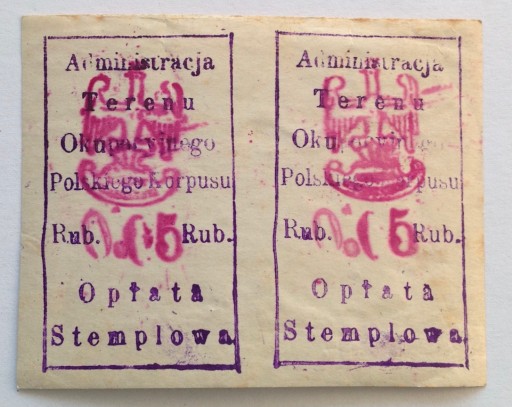 Administracja
Terenu
Okupacyjnego
Polskiego Korpusu
Rub. 0.05 Rub.
Opłata
Stemplowa
Administracja
Terenu
Okupacyjnego
Polskiego Korpusu
Rub. 0.05 Rub.
Opłata
Stemplowa